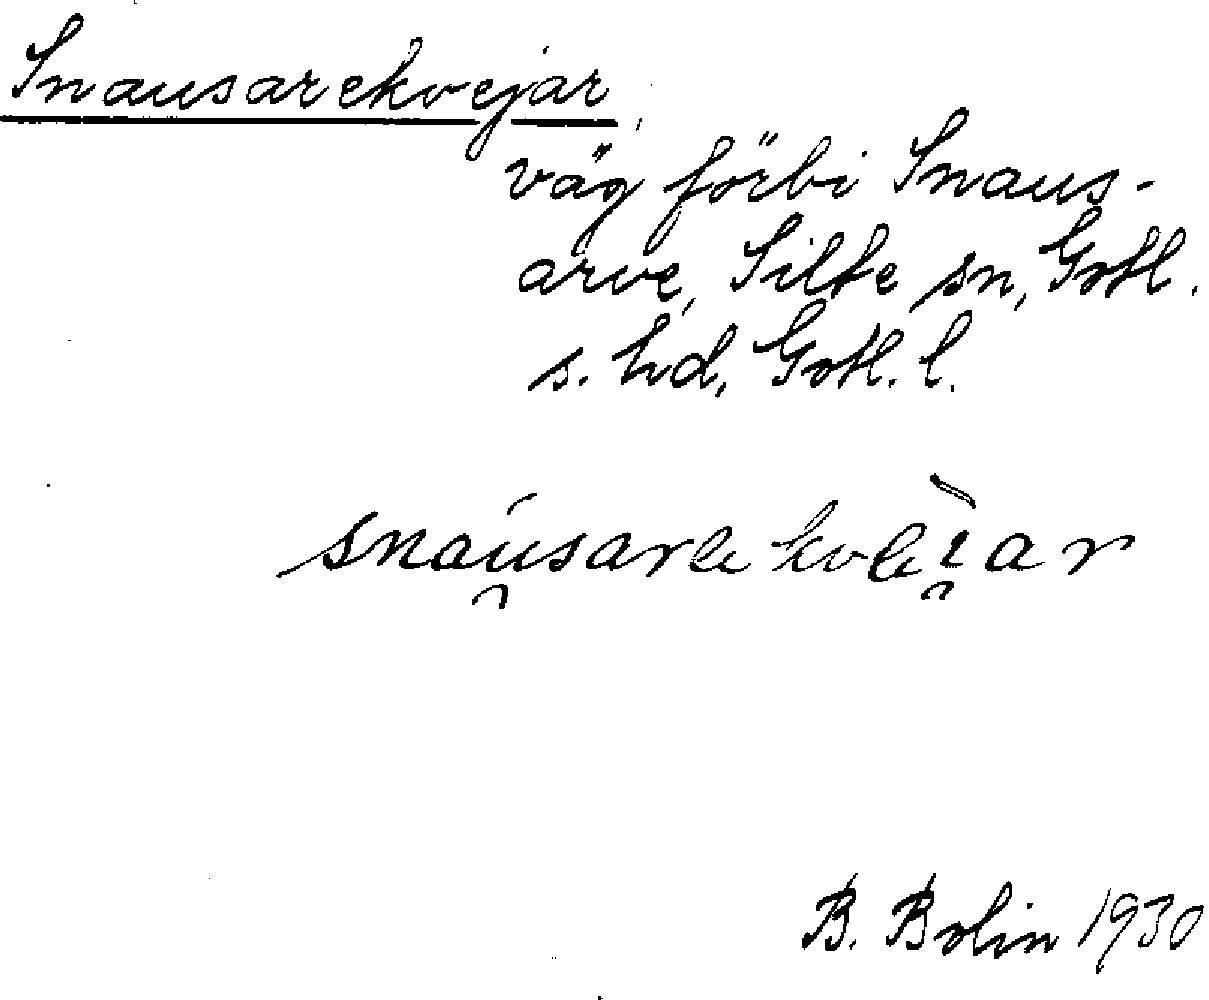 Snausarekvejar,
väg förbi Snaus-
arve, Silte sn, Gotl.
s. hd, Gotl. l.
snau̯sarekvei̯ar
B. Bolin 1930